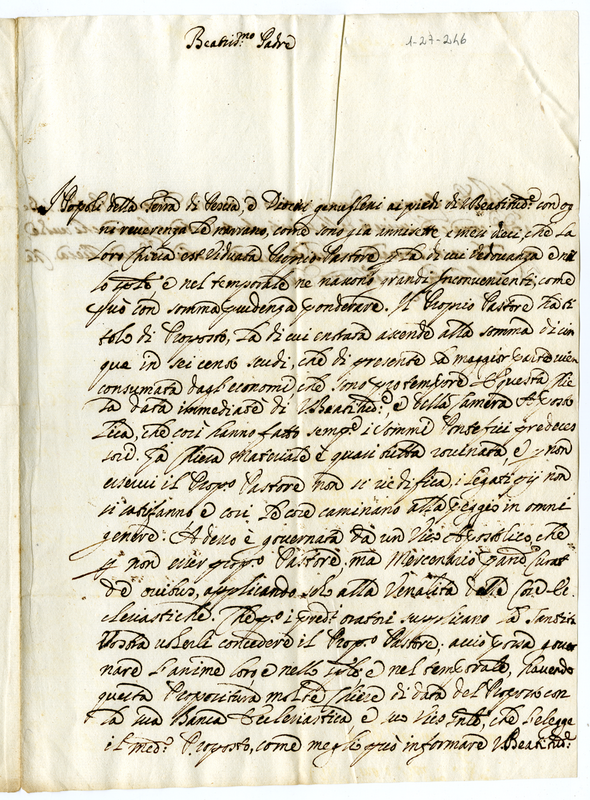 Beatiss.mo Padre
1-27-246
I Popoli della Terra di Pescia, e Diocesi genuflessi ai piedi di V. Beatitud.e con og
ni reverenza le narrano, come sono già anni sette e mesi dieci, che la
loro Chiesa est viduata Proprio Pastore e la di cui vedovanza e nel
lo e nel temporale ne nascono grandi Inconvenienti, come
può con somma prudenza ponderare. Il Proprio Pastore ha ti
tolo di Proposto, la di cui entrata ascende alla somma di cin
que in sei cento scudi, che di presente la maggior parte vien
consumata dagl'economi che sono pro tempore. È questa Chie
sa data immediate di V. Beatitud.e, e della Camera Aposto
lica, che così hanno fatto semp.e i Sommi Pontefici predeces
sori. La Chiesa Materiale è quasi tutta rovinata, e non
esservi il Prop.o Pastore non si riedifica, i Legati pij non
si satisfanno e così le cose caminano alla peggio in omni
genere. Adesso è governata da un Vic.o Apostolico, che
p non esser prop.o Pastore, ma Mercenario
de ovibus, applicando solo alla Venalità delle Cose Ec
clesiastiche. i pred.i oratori supplicano la Santità
Vostra volerli concedere il Prop.o Pastore, acciò possa gover
nare l'anime loro e nello e nel temporale, havendo
questa Propositura molte Chiese di data del Proposto con
la sua Banca Ecclesiastica e suo Vic.o, che l'elegge
il med.o Proposto, come meglio può informare V. Beatitud.e